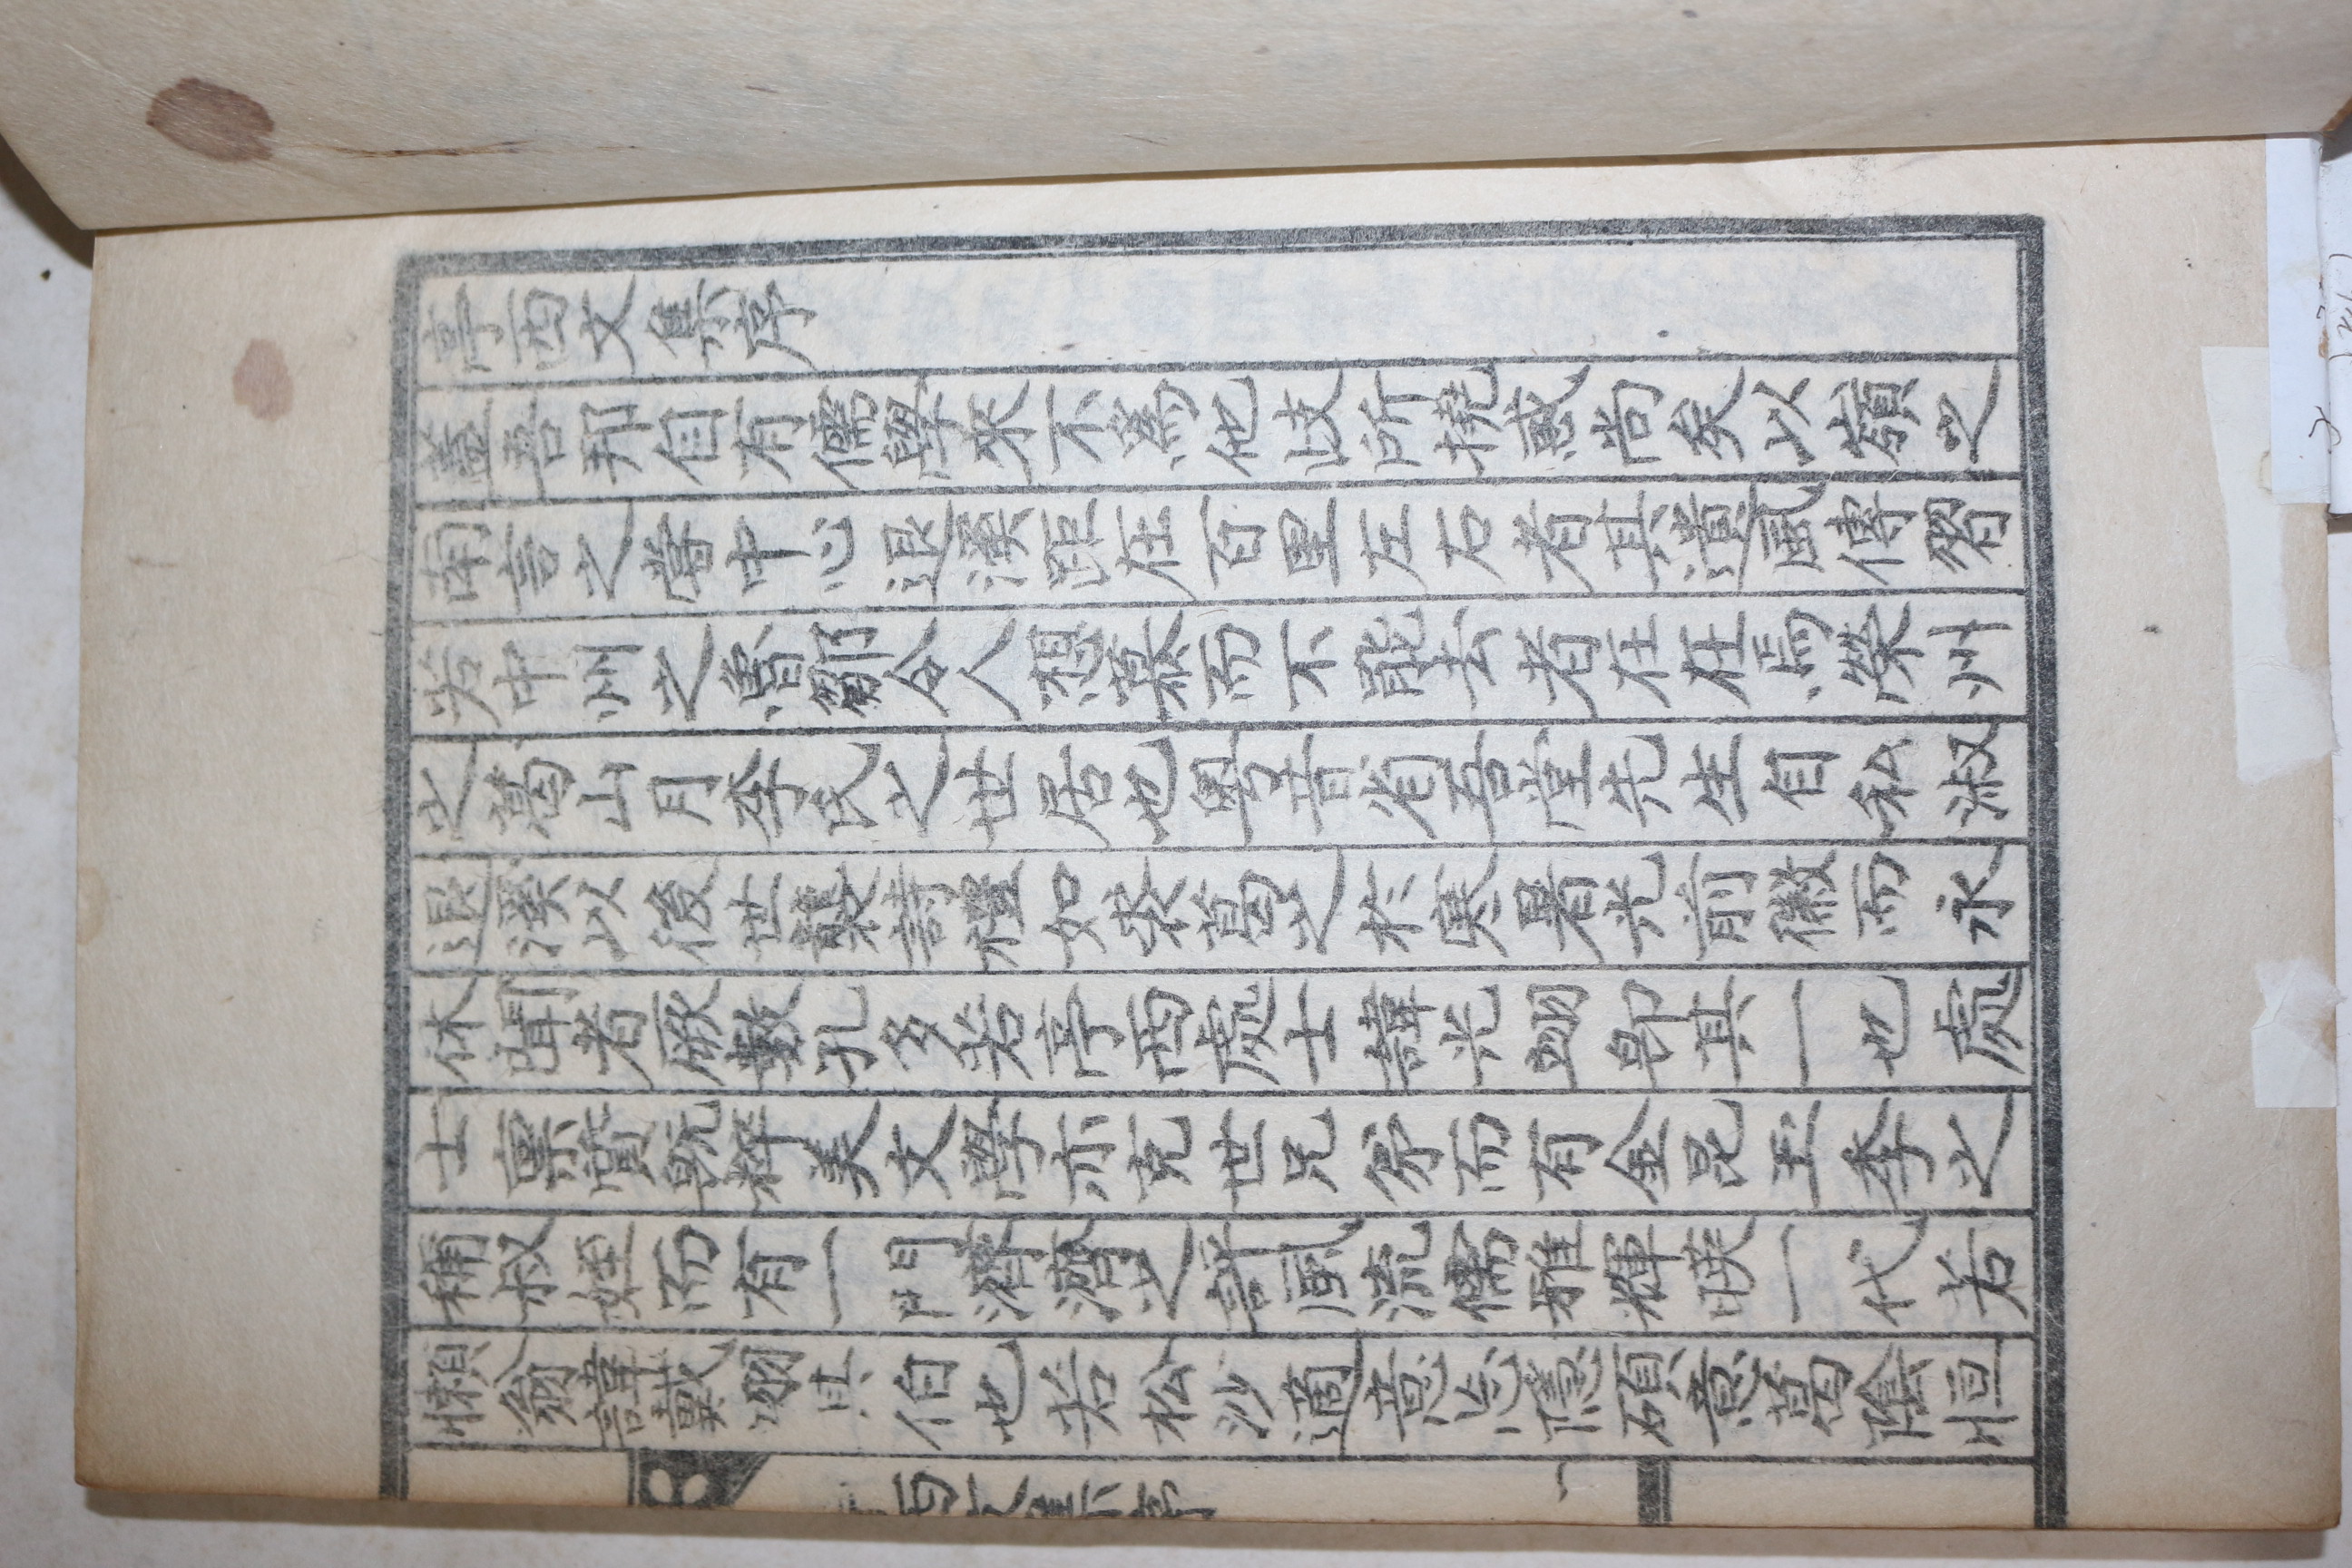 亭西文集序
蓋吾邦自有儒學來不爲他歧所撓惑尚矣以嶺之
南言之嘗中心退溪距在百里左右者其遺風傳習
若中州之魯鄒令人想慕而不能去者在在焉榮州
之葛山月李氏之世居也粤昔省吾堂先生自私淑
退溪以後世襲詩禮如裘葛之於寒暑光前徽而永
休聞者厥數孔多若亭西處士諱光翊卽其一也處
士稟質旣粹美文學亦克世兄弟而有金昆玉季之
稱叔姪而有一門濟濟之評風流儒雅輝暎一代若
懶翁諱戴翊其伯也若松沙適意忘隱碩意葛陰恒
西文集序
一